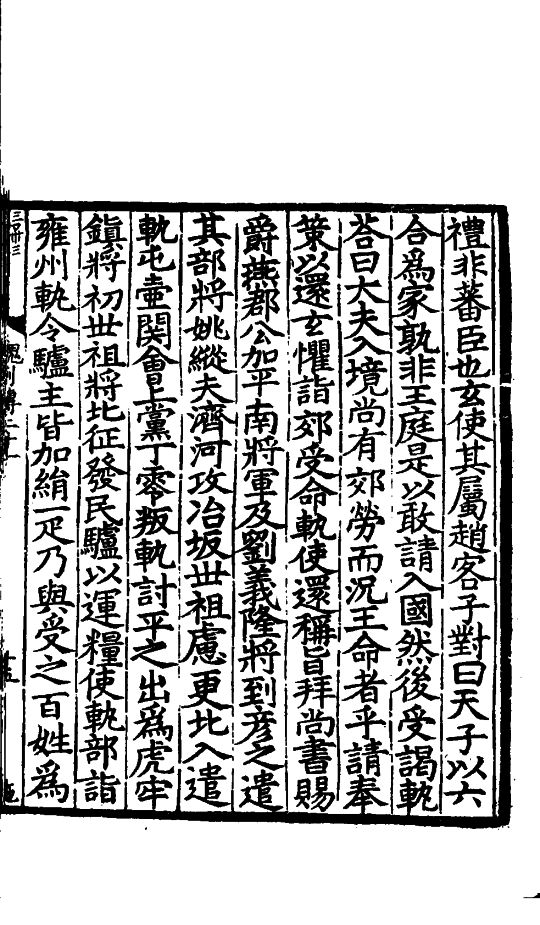 禮非蕃臣也玄使其屬趙客子對曰天子以六
合爲家孰非王庭是以敢請入國然後受謁軌
荅曰大夫入境尚有郊勞而況王命者乎請奉
策以還玄懼詣郊受命軌使還稱旨拜尚書賜
爵燕郡公加平南將軍及劉義隆將到彦之遣
其部將姚縱夫濟河攻冶坂世祖慮更北入遣
軌屯壺関會上黨丁零叛軌討平之出爲虎牢
鎮將初世祖將北征發民驢以運糧使軌部詣
雍州軌令驢主皆加絹一疋乃與受之百姓爲